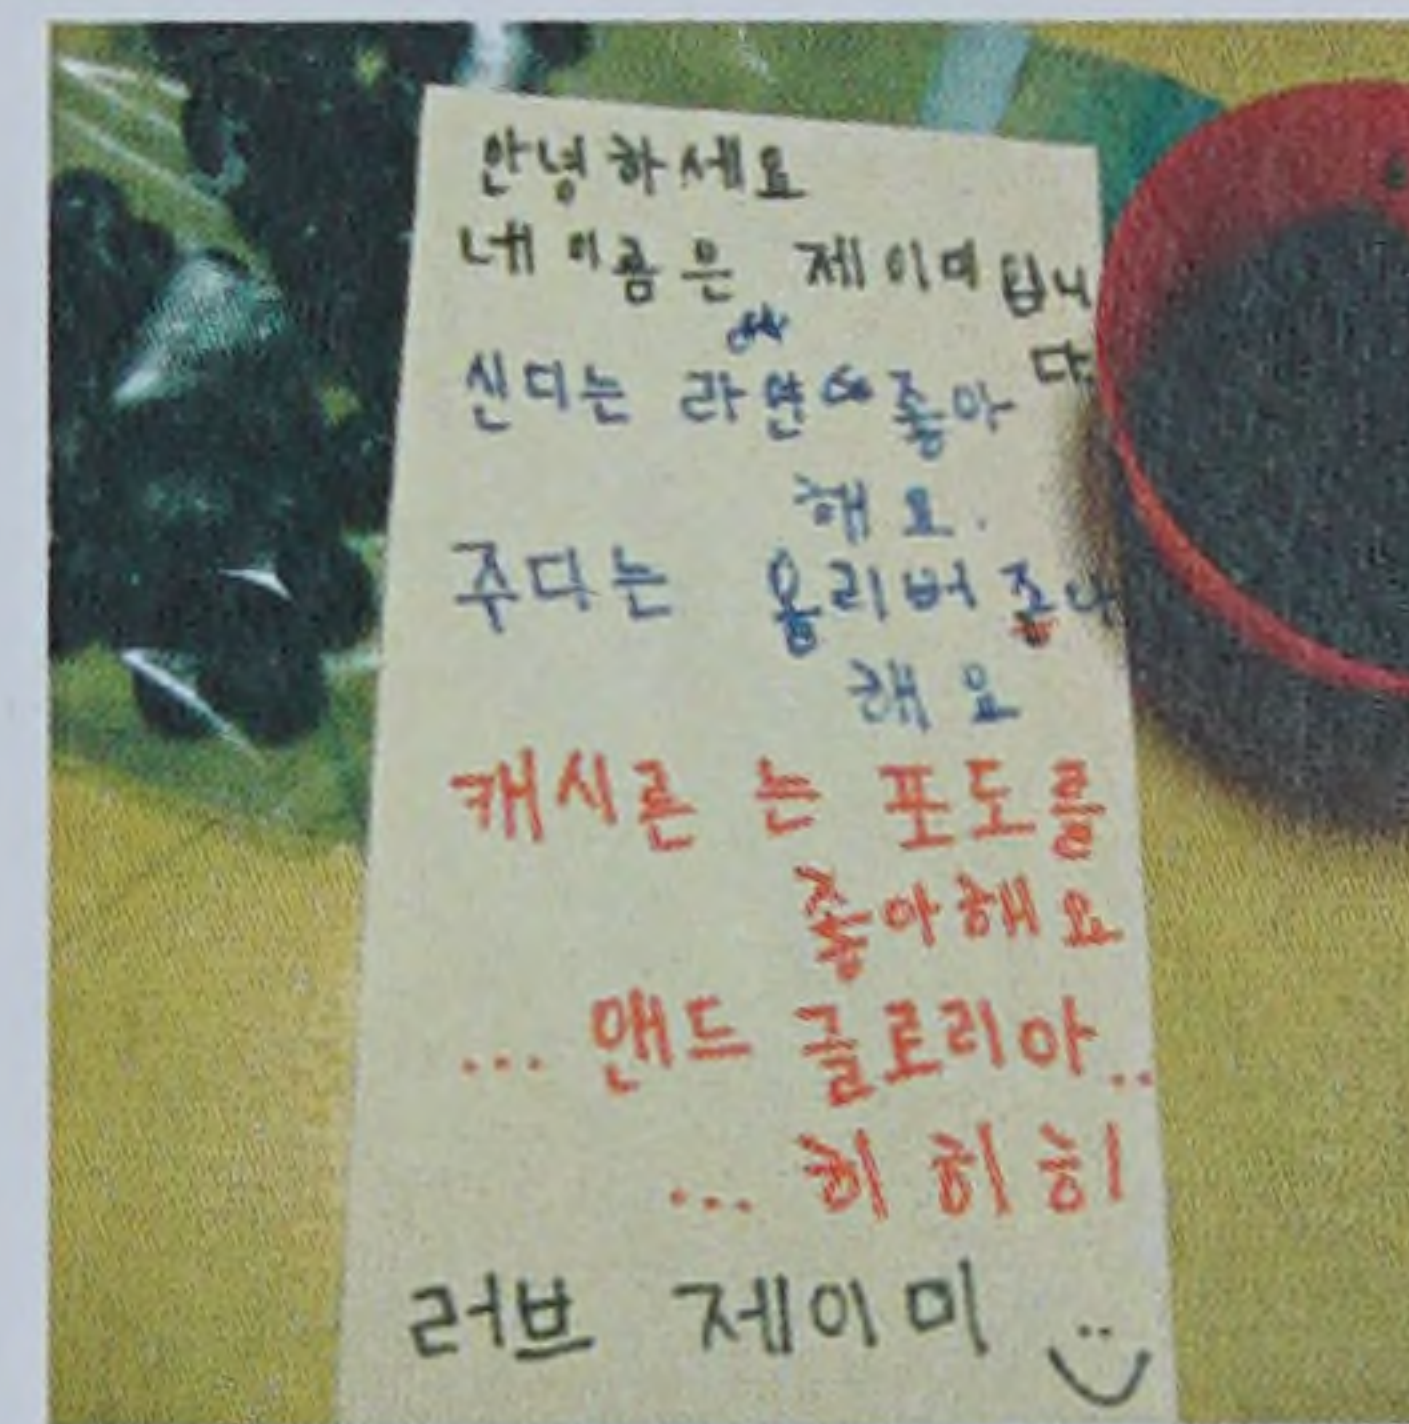 안녕하세요
네 이름은 제이미 입니
다.
신디는 라면 좋아
해요.
주디는 올리버 좋아
해요
캐시른 는 포도를
좋아해요
... 앤드 글로리아..
... 히 히 히
러브 제이미